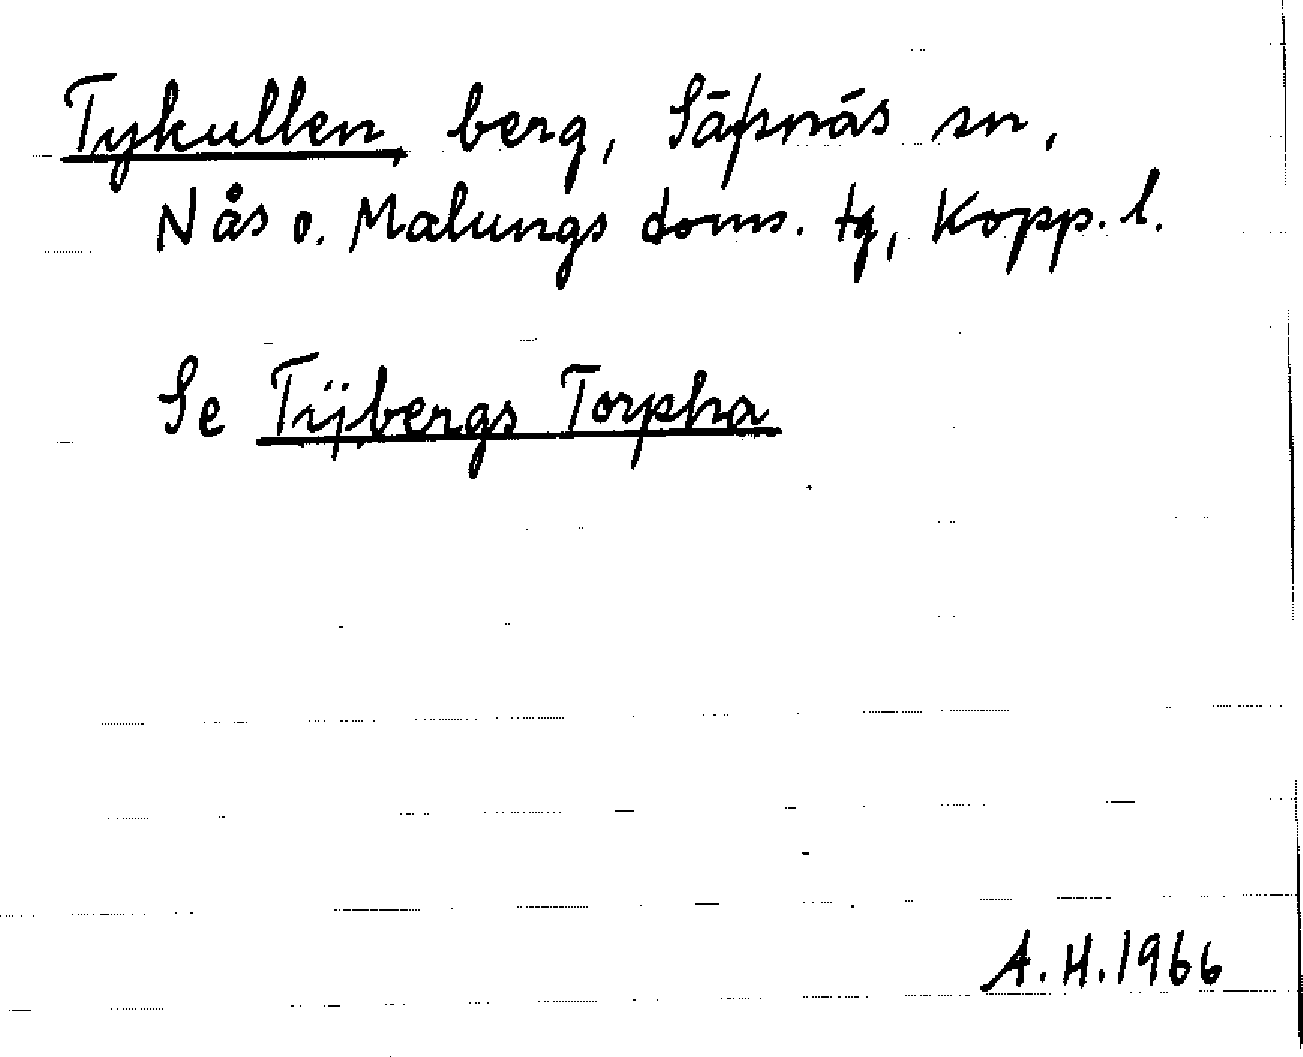 Tykullen, berg, Säfsnäs sn,
Nås o. Malungs doms. tg, Kopp. l.
Se Tÿbergs Torpha
A.H. 1966